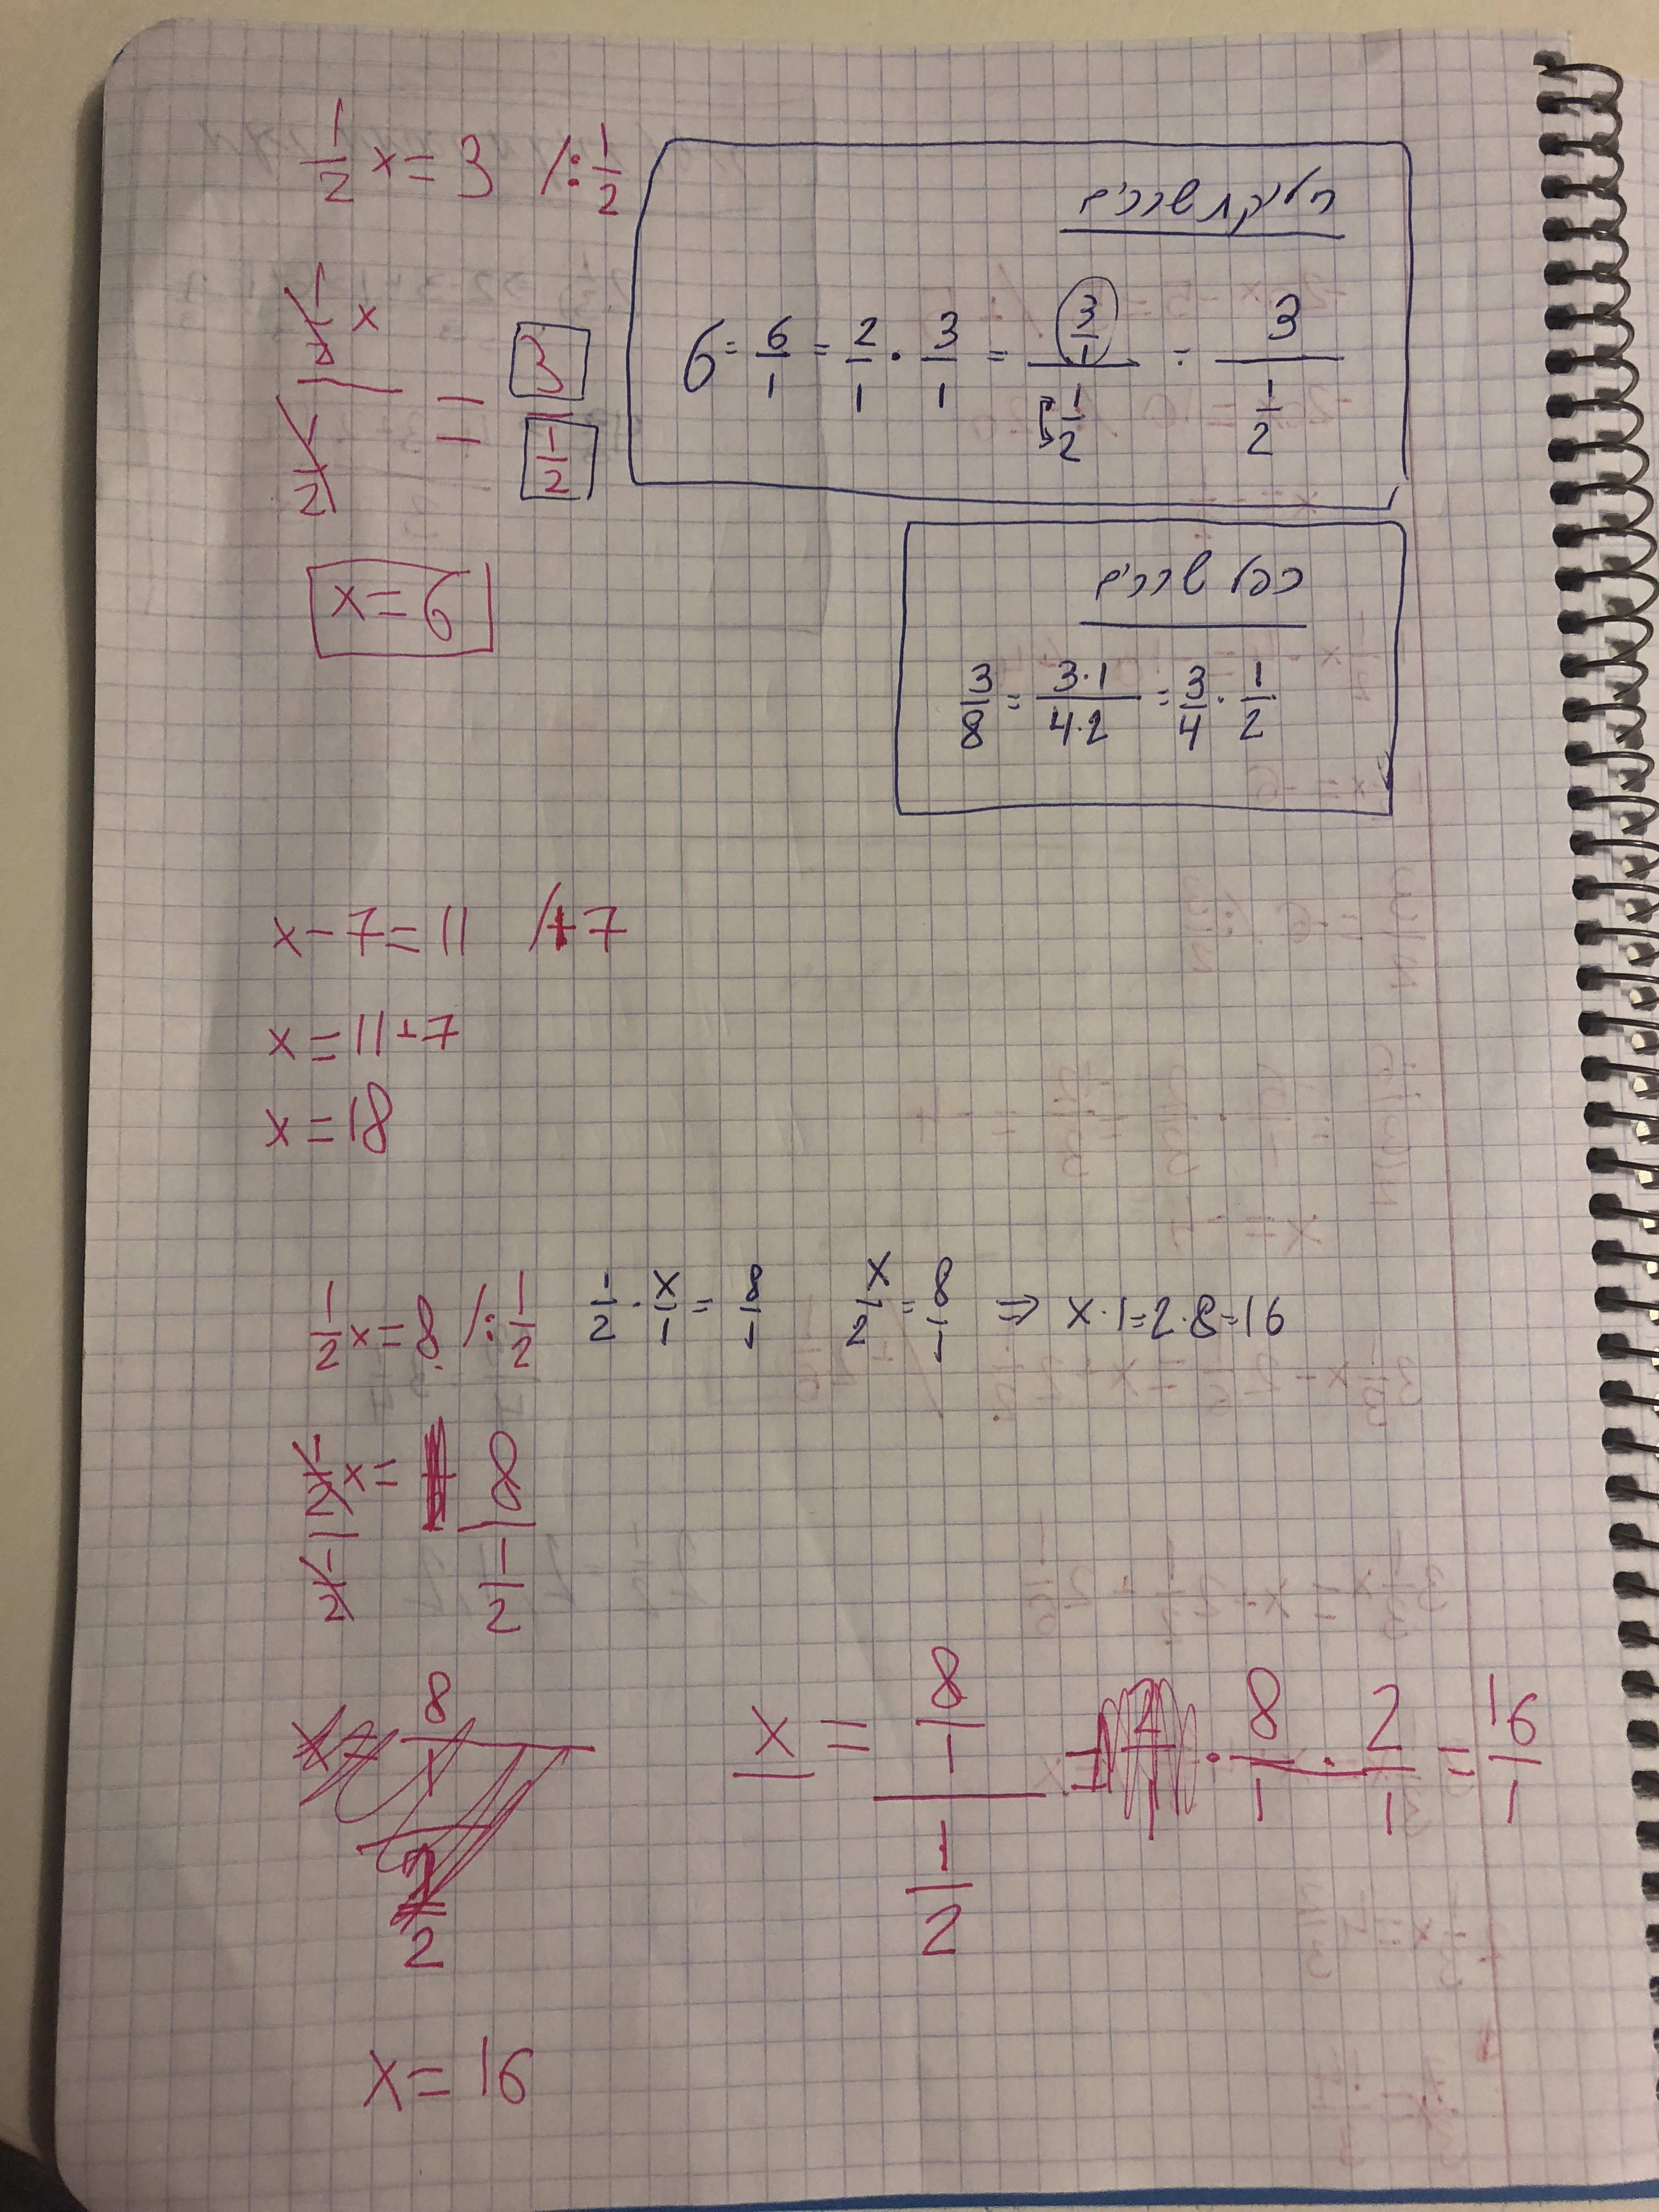 1/2 x = 3 /: 1/2
חילוק שברים
(1/2 x)/(1/2) = 3/(1/2)
6 = 6/1 = 2/1 · 3/1 = (3/1)/(1/2) = 3/(1/2)
x = 6
כפל שברים
3/8 = 3·1/4·2 = 3/4 · 1/2
x - 7 = 11 /+7
x = 11 + 7
x = 18
1/2 x = 8 /: 1/2
1/2 · x/1 = 8/1
x/2 = 8/1 ⇒ x · 1 = 2 · 8 = 16
(1/2 x)/(1/2) = 8/(1/2)
8/1
2
x = (8/1)/(1/2) = · 8/1 · 2/1 = 16/1
x = 16